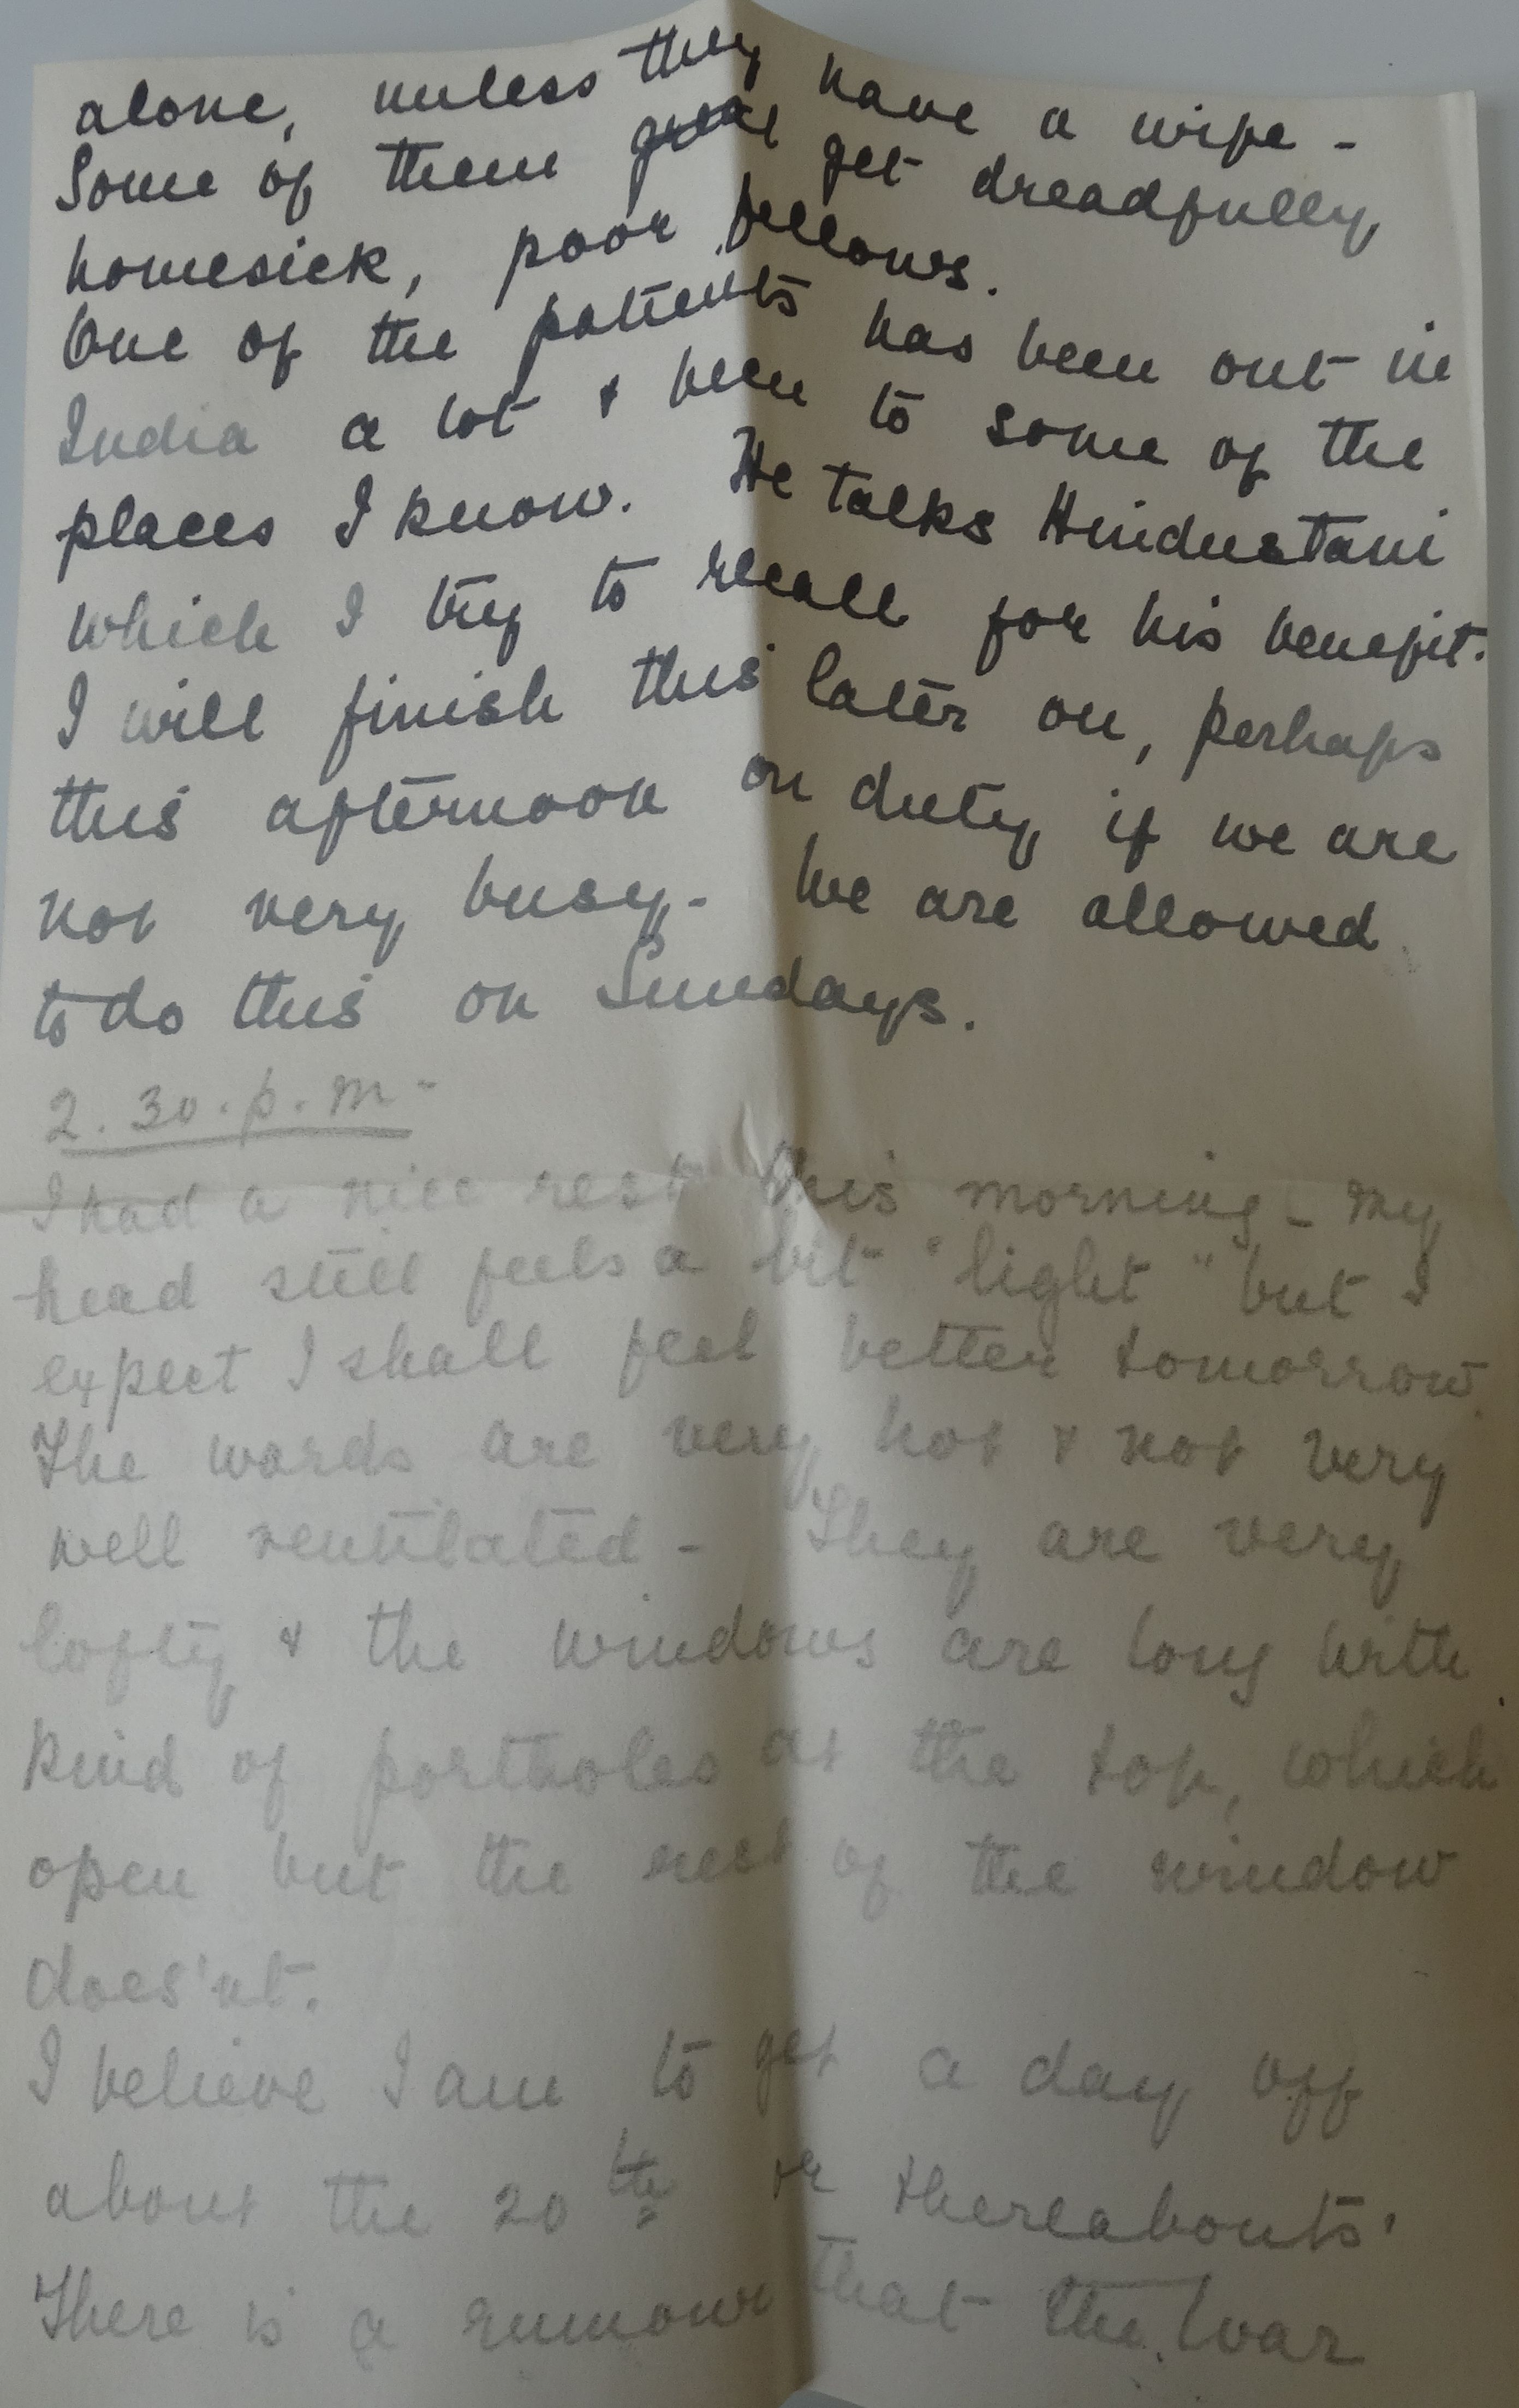 alone, unless they have a wife -
Some of them get dreadfully
homesick, poor fellows.
One of the patients has been out in
India a lot & been to some of the
places I know. He talks Hindustani
which I try to recall for his benefit.
I will finish this later on, perhaps
this afternoon on duty if we are
not very busy - We are allowed
to do this on Sundays.
2.30.p.m -
I had a nice rest this morning - My
head still feels a bit "light" but I
expect I shall feel better tomorrow.
The wards are very hot & not very
well ventilated - They are very
lofty & the windows are long with
kind of portholes at the top, which
open but the rest of the window
does'nt.
I believe I am to get a day off
about the 20th or thereabouts.
There is a rumour that the War